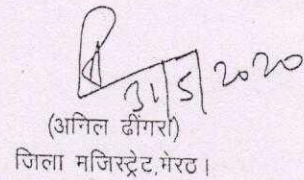 31/5/2020
(अनिल ढींगरा)
जिला मजिस्ट्रेट,मेरठ।